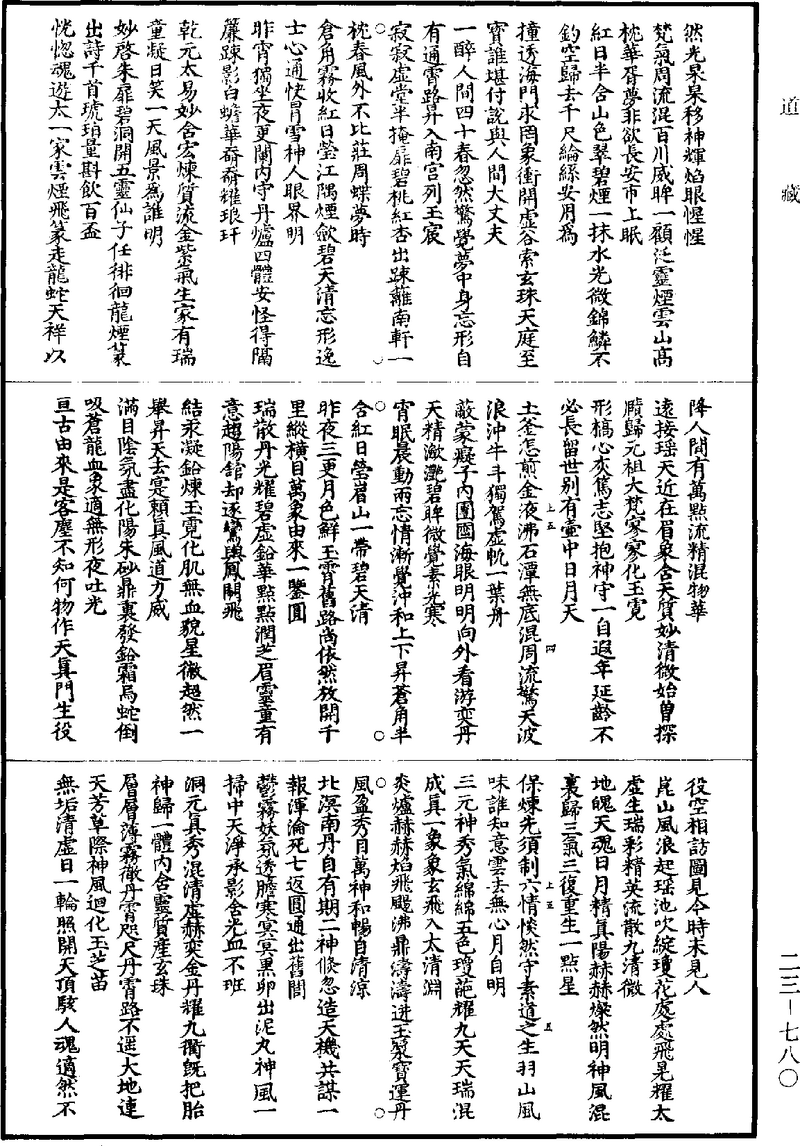 道藏
然光杲杲移神輝焰眼惺惺
梵氣周流混百川威眸一顧泛靈煙雲山高
枕華胥夢非欲長安市上眠
紅日半含山色翠碧煙一抹水光微錦鱗不
釣空歸去千尺綸絲安用為
撞透海門求罔象衝開虛谷索玄珠天庭至
寶誰堪付說與人間大丈夫
一醉人間四十春忽然驚覺夢中身忘形自
有通霄路昇入南宮列玉宸
寂寂虛堂半掩扉碧桃紅杏出踈蘺南軒一
枕春風外不比莊周蝶夢時
倉角霧收紅日瑩江隅煙歛碧天清忘形逸
士心通快胃雪神人眼界明
昨宵獨坐夜更闌內守丹爐四體安怪得隔
簾踈影白蟾華奇奇耀琅玕
乾元太易妙含宏煉質流金紫氣生家有瑞
童凝日笑一天風景為誰明
妙啓朱扉碧洞開五靈仙子任徘徊龍煙篆
出詩千首琥珀量斟飲百盃
恍惚魂遊太一家雲煙飛篆走龍蛇天祥以
降人間有萬點流精混物華
遠接瑶天近在眉裒含天質妙清微始曽探
賾歸元祖大梵寥寥化玉霓
形槁心灰篤志堅抱神守一自遐年延齡不
必長留世別有壷中日月天
土釜怎煎金液沸石潭無底混周流驚天波
浪沖牛斗獨駕虛帆一葉舟
蔽蒙癡子內團圞海眼明明向外看游奕丹
天精瀲灔碧眸微覺素光寒
宵眠晨動兩忘情漸覺沖和上下昇蒼角半
含紅日瑩眉山一帶碧天清
昨夜三更月色鮮玉霄舊路尚依然放開千
里縱橫目萬象由來一鑒圓
瑞散丹光耀碧虛鉛華點點潤芝眉靈童有
意趨陽舘却逐鸞輿鳳闕飛
結汞凝鉛煉玉霓化肌無血貌星微超然一
舉昇天去寔賴真風道力威
滿目陰氛盡化陽朱砂鼎裏發鉛霜烏蛇倒
吸蒼龍血象適無形夜吐光
亘古由來是客塵不知何物作天真門生役
役空相訪圖見今時未見人
崑山風浪起瑶池吹綻瓊花處處飛晃耀太
虛生瑞彩精英流散九清微
地魄天魂日月精真陽赫赫燦然明神風混
裏歸三氣三復重生一點星
保煉先須制六情惔然守素道之生羽山風
味誰知意雲去無心月自明
三元神秀氣綿綿五色瓊葩耀九天天瑞混
成真一象象玄飛入太清淵
炎爐赫赫焰飛颺沸鼎濤濤迸玉漿寶運丹
風盈秀目萬神和暢自清涼
北溟南丹自有期二神倏忽造天機共謀一
報渾淪死七返圓通出舊閭
鬱霧妖氛透膽寒冥冥黑卯出泥丸神風一
掃中天淨承影含光血不班
洞元真秀混清虛赫奕金丹耀九衢旣把胎
神歸一體內含靈質産玄珠
層層薄霧徹丹霄咫尺丹霄路不遥大地連
天芳草際神風迴化玉芝苗
無垢清虛日一輪照開天頂駭人魂適然不
上五
四
上五
五
二三－七八〇